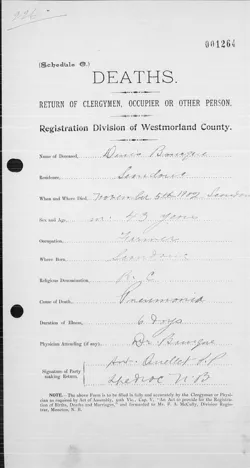 001264
(Schedule C.)
DEATHS.
RETURN OF CLERGYMEN, OCCUPIER OR OTHER PERSON.
Registration Division of Westmorland County.
Name of Deceased,
Residence,
When and Where Died, November 5th 1902
Sex and Age, m. 43 years
Occupation, Farmer
Where Born,
Religious Denomination, R. C
Cause of Death, Pneumonia
Duration of Illness, 6 days
Physician Attending (if any), Dr
Signature of Party
making Return, Ouellet
Shediac N.B
NOTE.—The above Form is to be filled in fully and accurately by the Clergyman or Physician as required by Act of Assembly, 50th Vic., Cap. V, "An Act to provide for the Registration of Births, Deaths and Marriages," and forwarded to Mr. F. A. McCully, Division Registrar, Moncton, N. B.